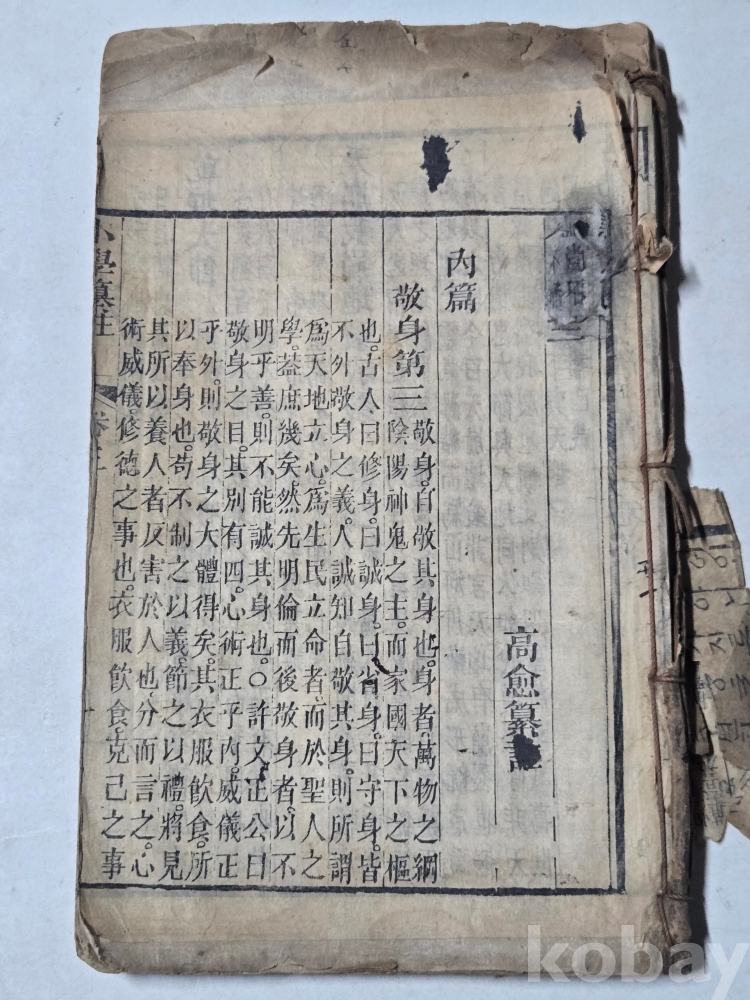 高愈纂註
內篇
敬身第三
敬身。自敬其身也。身者。萬物之綱
陰陽神鬼之主。而家國天下之樞
也。古人曰修身。曰誠身。曰省身。曰守身。皆
不外敬身之義。人誠知自敬其身。則所謂
爲天地立心。爲生民立命者。而於聖人之
學。葢庶幾矣。然先明倫而後敬身者。以不
明乎善。則不能誠其身也。○許文正公曰
敬身之目。其別有四。心術正乎內。威儀正
乎外。則敬身之大體得矣。其衣服飮食。所
以奉身也。苟不制之以義。節之以禮。將見
其所以養人者反害於人也。分而言之。心
術威儀。修德之事也。衣服飮食。克己之事
小學纂註
kobay